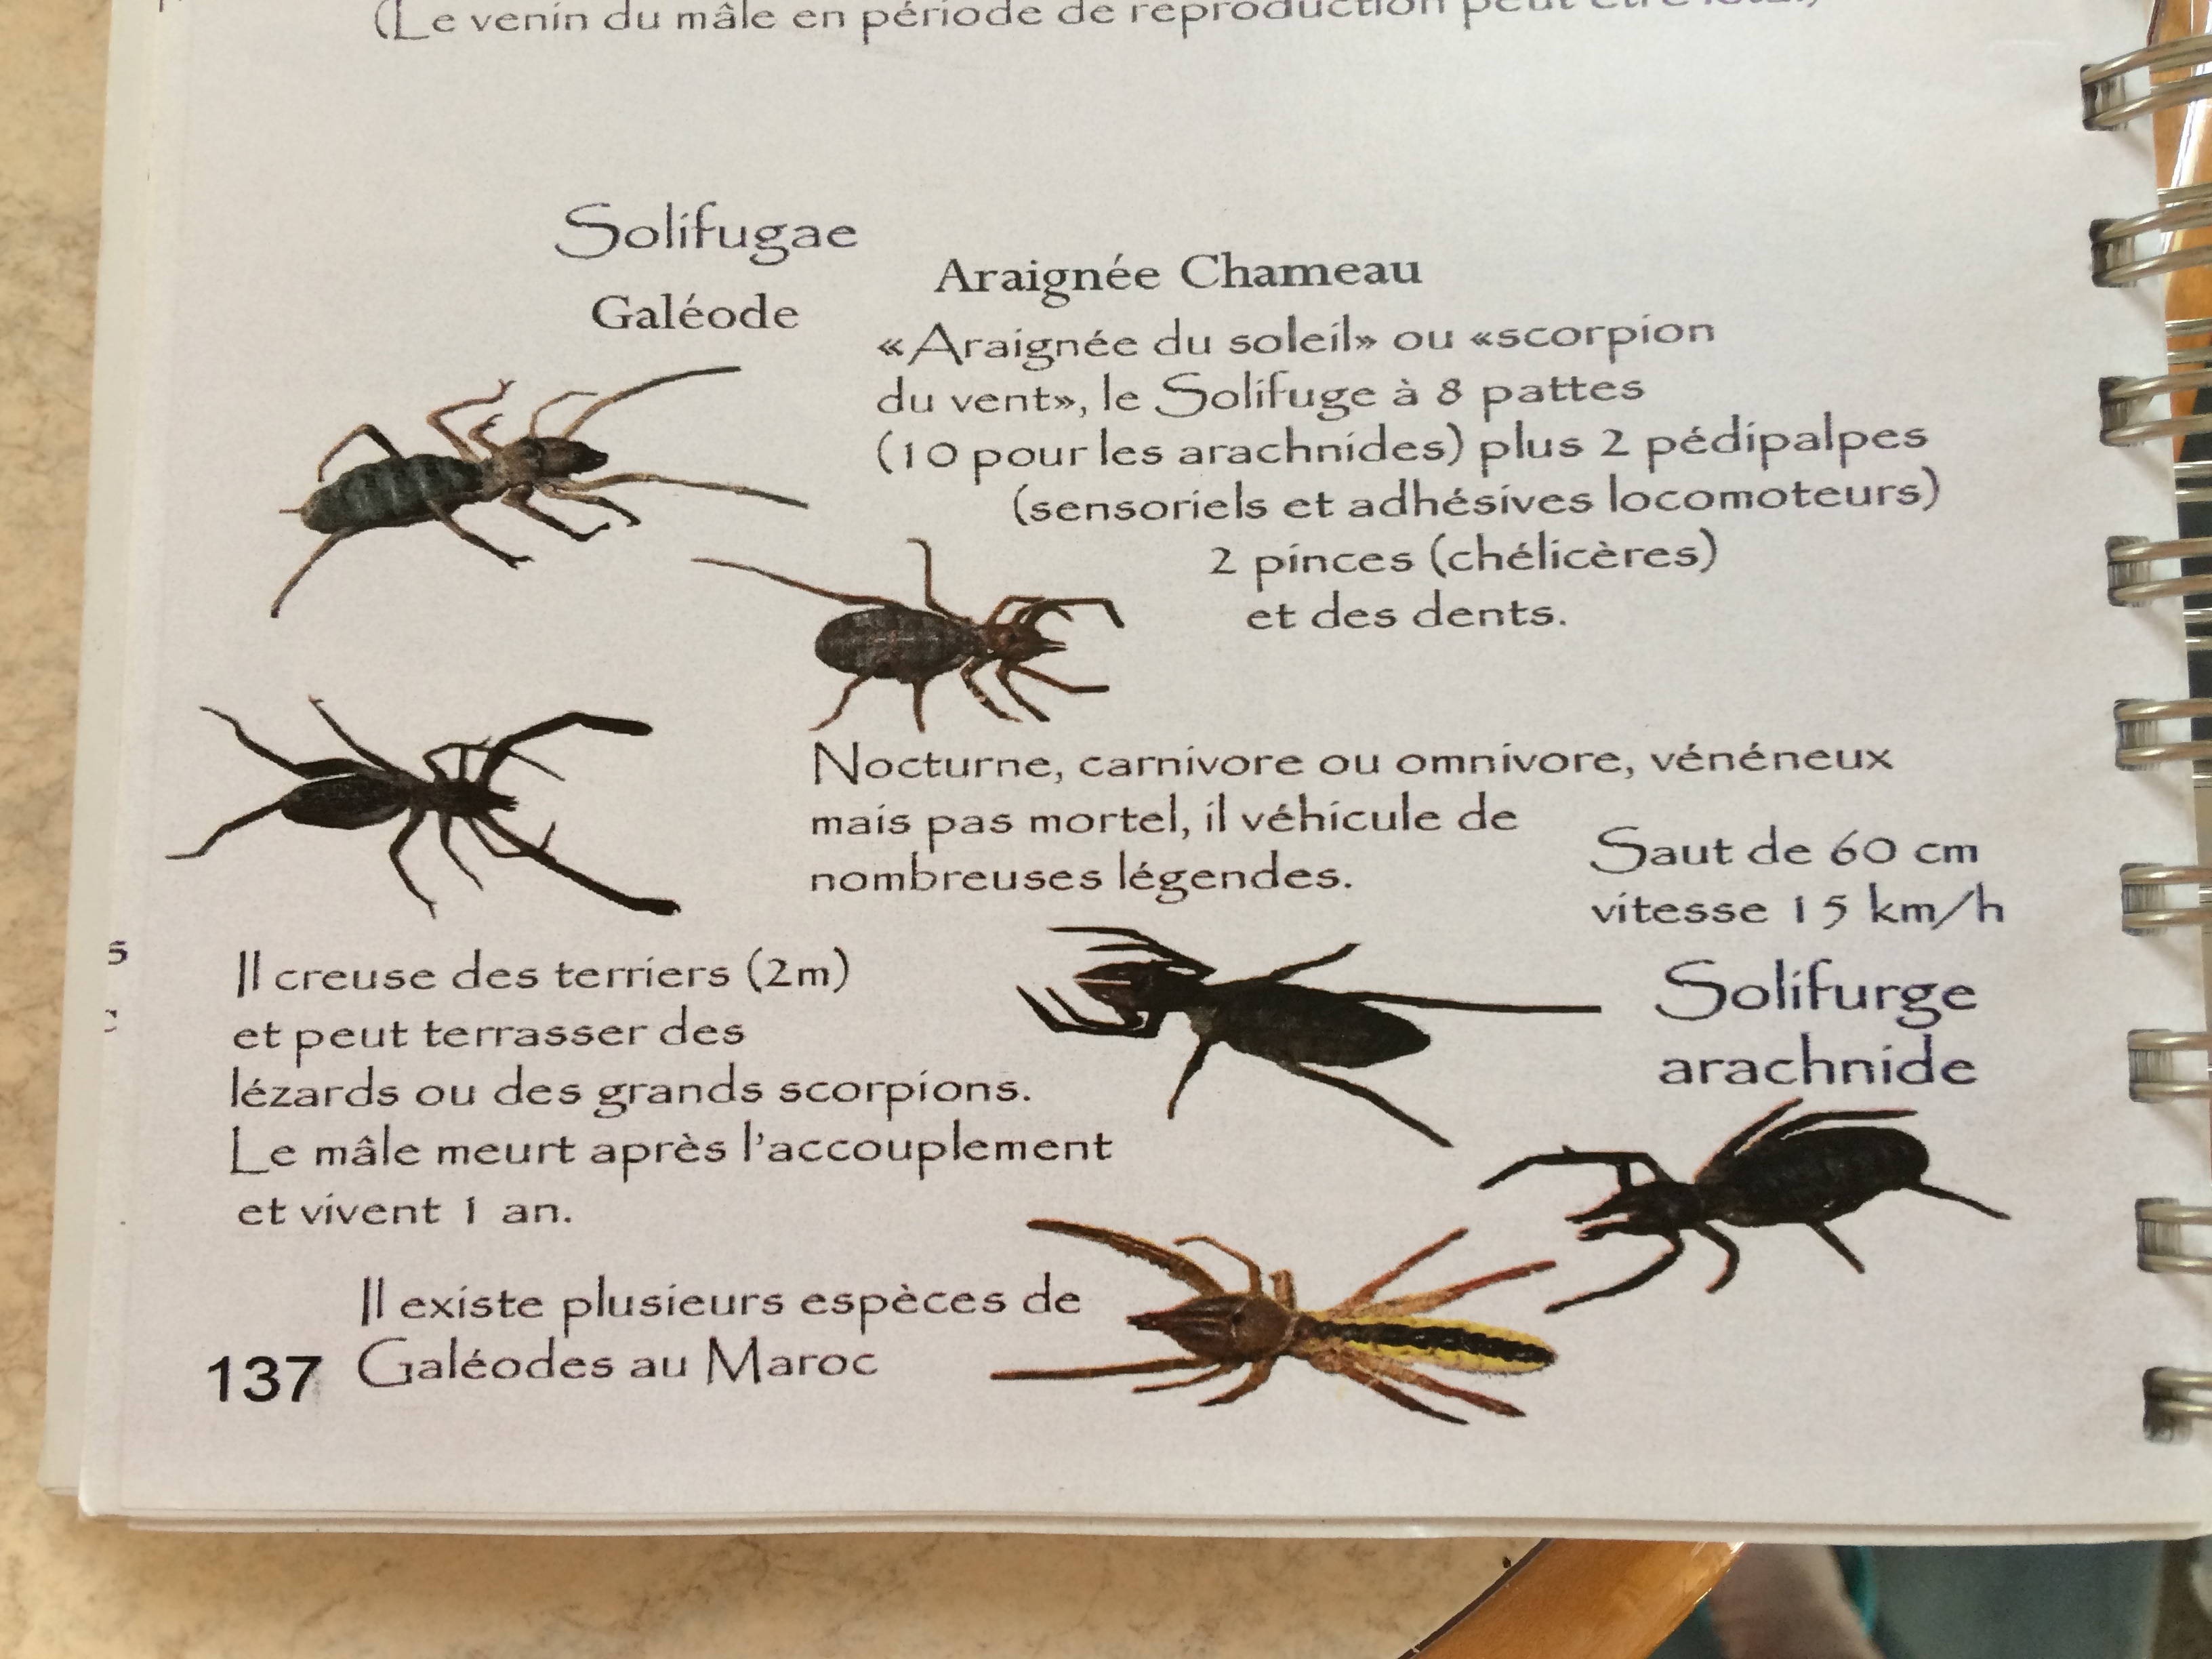 (Le venin du mâle en période de reproduction peut être
Solifugae
Galéode
Araignée Chameau
«Araignée du soleil» ou «scorpion
du vent», le Solifuge à 8 pattes
(10 pour les arachnides) plus 2 pédipalpes
(sensoriels et adhésives locomoteurs)
2 pinces (chélicères)
et des dents.
Nocturne, carnivore ou omnivore, vénéneux
mais pas mortel, il véhicule de
nombreuses légendes.
Saut de 60 cm
vitesse 15 km/h
Solifurge
arachnide
s
Il creuse des terriers (2m)
et peut terrasser des
lézards ou des grands scorpions.
Le mâle meurt après l'accouplement
et vivent 1 an.
Il existe plusieurs espèces de
Galéodes au Maroc
137